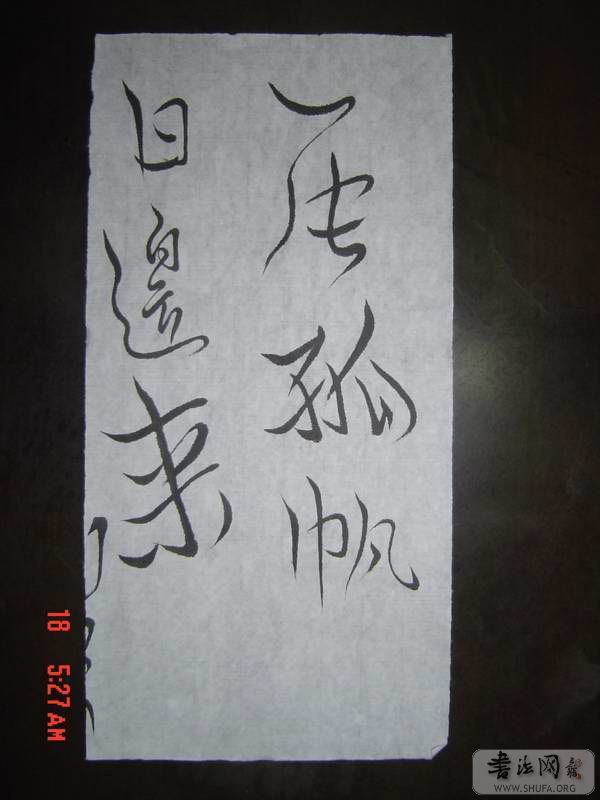 一片孤帆
日邊来
18 5:27 AM
书法网
WWW.SHUFA.ORG